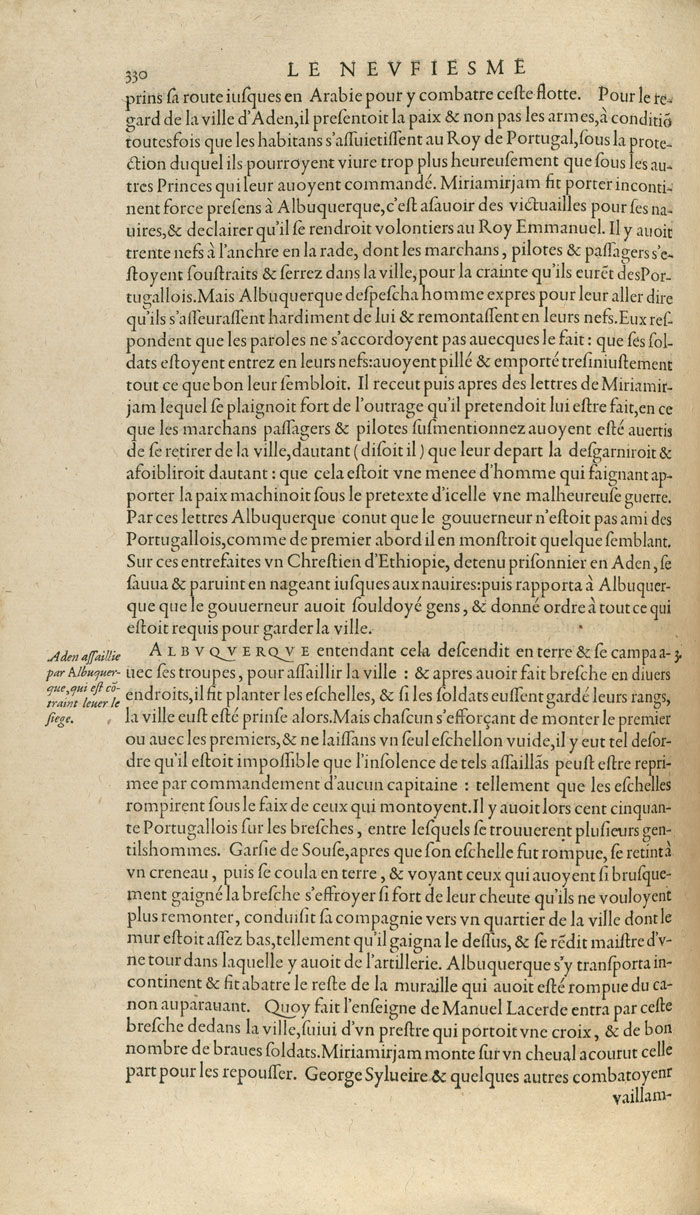 330 LE NEVFIESME
prins ſa route iuſques en Arabie pour y combatre ceſte flotte. Pour le re-
gard de la ville d'Aden,il preſentoit la paix & non pas les armes,à conditiõ
toutesfois que les habitans s'aſſuietiſſent au Roy de Portugal,ſous la prote-
ction duquel ils pourroyent viure trop plus heureuſement que ſous les au-
tres Princes qui leur auoyent commandé. Miriamirjam fit porter inconti-
nent force preſens à Albuquerque,c'eſt aſauoir des victuailles pour ſes na-
uires,& declairer qu'il ſe rendroit volontiers au Roy Emmanuel. Il y auoit
trente nefs à l'anchre en la rade, dont les marchans, pilotes & paſſagers s'e-
ſtoyent ſouſtraits & ſerrez dans la ville,pour la crainte qu'ils eurẽt des Por-
tugallois.Mais Albuquerque deſpeſcha homme expres pour leur aller dire
qu'ils s'aſſeuraſſent hardiment de lui & remontaſſent en leurs nefs.Eux reſ-
pondent que les paroles ne s'accordoyent pas auecques le fait : que ſes ſol-
dats eſtoyent entrez en leurs nefs:auoyent pillé & emporté treſiniuſtement
tout ce que bon leur ſembloit. Il receut puis apres des lettres de Miriamir-
jam lequel ſe plaignoit fort de l'outrage qu'il pretendoit lui eſtre fait,en ce
que les marchans paſſagers & pilotes ſuſmentionnez auoyent eſté auertis
de ſe retirer de la ville,dautant ( diſoit il ) que leur depart la deſgarniroit &
afoibliroit dautant : que cela eſtoit vne menee d'homme qui faignant ap-
porter la paix machinoit ſous le pretexte d'icelle vne malheureuſe guerre.
Par ces lettres Albuquerque conut que le gouuerneur n'eſtoit pas ami des
Portugallois,comme de premier abord il en monſtroit quelque ſemblant.
Sur ces entrefaites vn Chreſtien d'Ethiopie, detenu priſonnier en Aden, ſe
ſauua & paruint en nageant iuſques aux nauires:puis rapporta à Albuquer-
que que le gouuerneur auoit ſouldoyé gens, & donné ordre à tout ce qui
eſtoit requis pour garder la ville.
ALBVQVERQVE entendant cela deſcendit en terre & ſe campa a- 3.
uec ſes troupes, pour aſſaillir la ville : & apres auoir fait breſche en diuers
endroits,il fit planter les eſchelles, & ſi les ſoldats euſſent gardé leurs rangs,
la ville euſt eſté prinſe alors.Mais chaſcun s'efforçant de monter le premier
ou auec les premiers,& ne laiſſans vn ſeul eſchellon vuide,il y eut tel deſor-
dre qu'il eſtoit impoſſible que l'inſolence de tels aſſaillãs peuſt eſtre repri-
mee par commandement d'aucun capitaine : tellement que les eſchelles
rompirent ſous le faix de ceux qui montoyent.Il y auoit lors cent cinquan-
te Portugallois ſur les breſches, entre leſquels ſe trouuerent pluſieurs gen-
tilshommes. Garſie de Souſe,apres que ſon eſchelle fut rompue, ſe retint à
vn creneau, puis ſe coula en terre, & voyant ceux qui auoyent ſi bruſque-
ment gaigné la breſche s'effroyer ſi fort de leur cheute qu'ils ne vouloyent
plus remonter, conduiſit ſa compagnie vers vn quartier de la ville dont le
mur eſtoit aſſez bas,tellement qu'il gaigna le deſſus, & ſe rẽdit maiſtre d'v-
ne tour dans laquelle y auoit de l'artillerie. Albuquerque s'y tranſporta in-
continent & fit abatre le reſte de la muraille qui auoit eſté rompue du ca-
non auparauant. Quoy fait l'enſeigne de Manuel Lacerde entra par ceſte
breſche dedans la ville,ſuiui d'vn preſtre qui portoit vne croix, & de bon
nombre de braues ſoldats.Miriamirjam monte ſur vn cheual acourut celle
part pour les repouſſer. George Sylueire & quelques autres combatoyent
vaillam-
Aden aſſaillie
par Albuquer-
que,qui eſt cõ-
traint leuer le
ſiege.